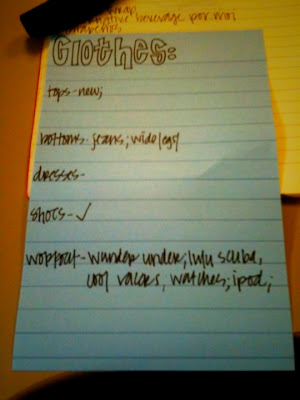 beverage por moi
Clothes:
tops - new;
bottoms - jeans; wide legs
dresses -
shoes - ✓
workout - wunder under; lulu scuba,
cool racers, watches; ipod;